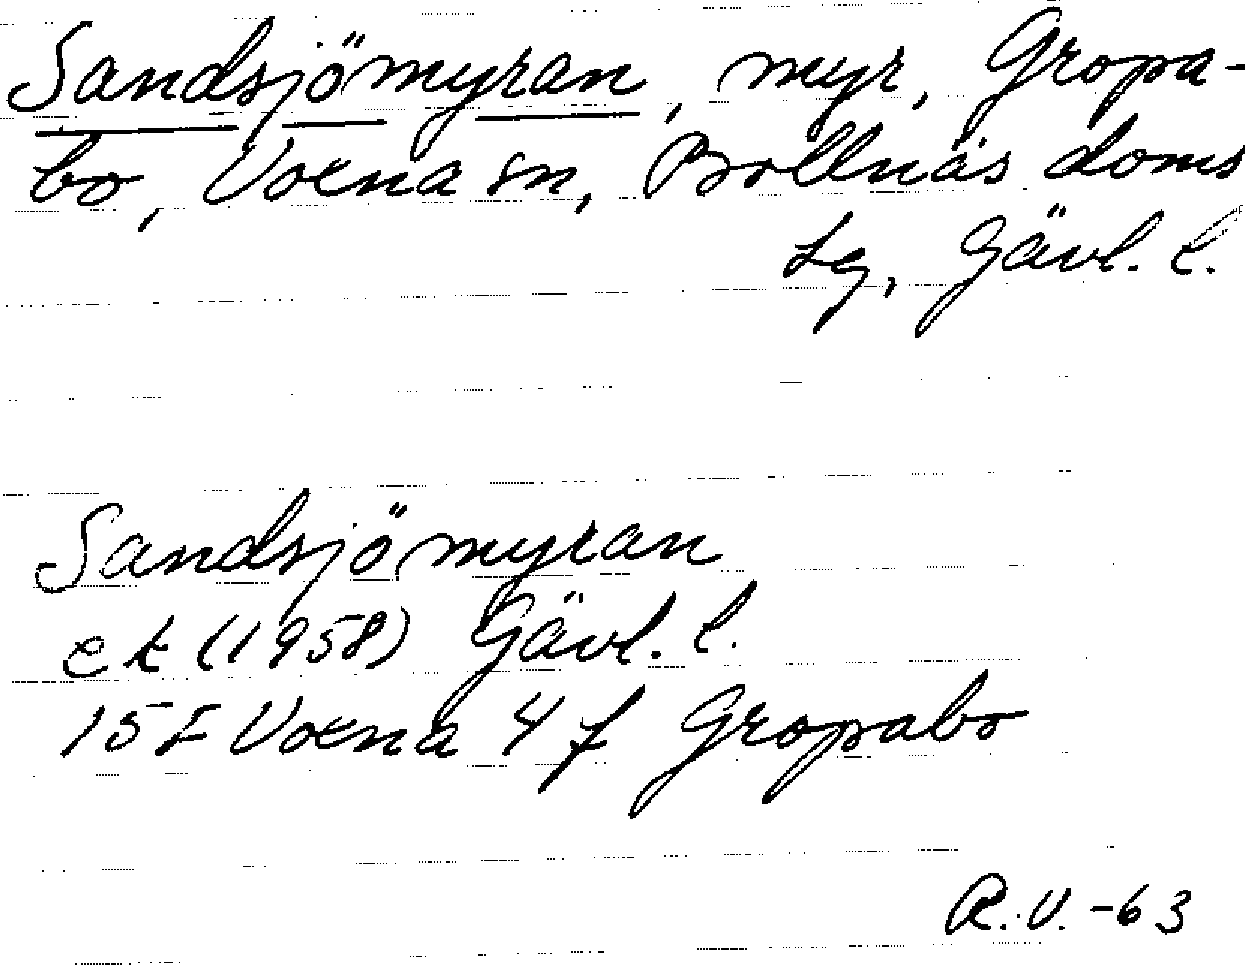 Sandsjömyran, myr, Gropa-
bo, Voxna sn, Bollnäs doms
sg, Gävl. l.
Sandsjömyran
ek (1958) Gävl. l.
15 F Voxna 4 f Gropabo
R.V. -63